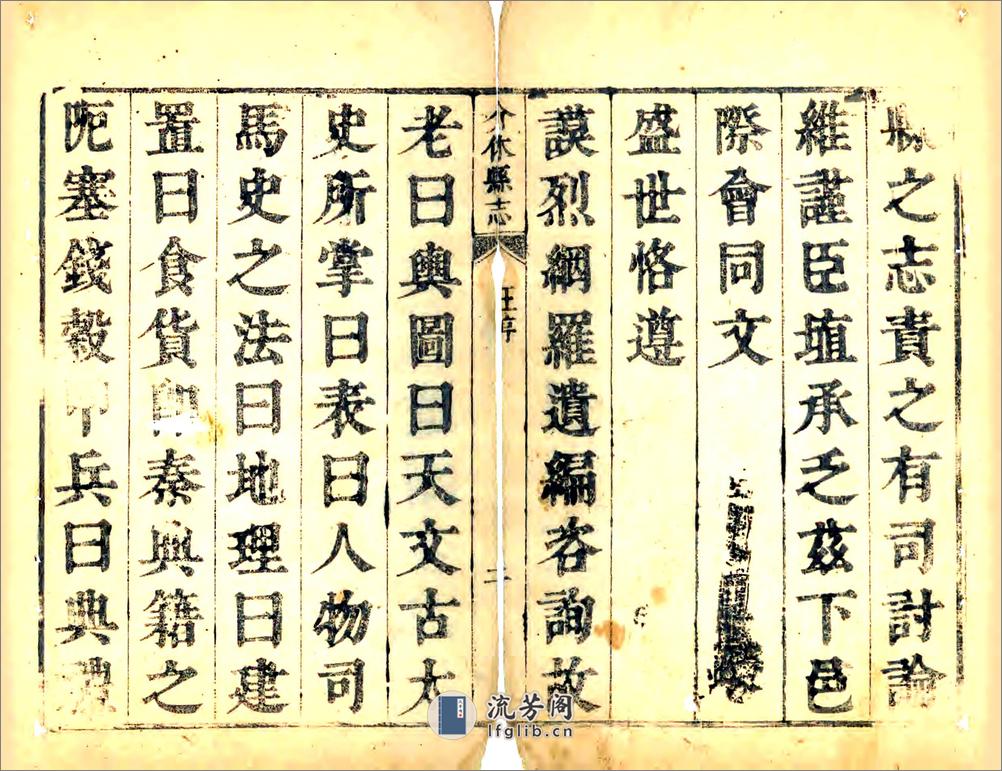 縣之志責之有司討論
維謹臣埴承乏茲下邑
際會同文
盛世恪遵
謨烈網羅遺編咨詢故
介休縣志
王序
二
老曰輿圖曰天文古太
史所掌曰表曰人物司
馬史之法曰地理曰建
置曰食貨即秦輿籍之
阨塞錢穀甲兵曰典禮
流芳阁
lfglib.cn